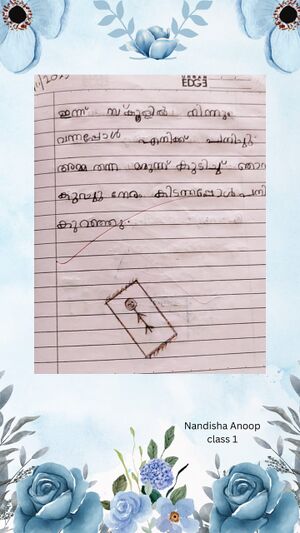 EDGE
ഇന്ന് സ്കൂളിൽ നിന്നും
വന്നപ്പോൾ എനിക്ക് പനിച്ചു.
അമ്മ തന്ന മരുന്ന് കുടിച്ച് ഞാൻ
കുറച്ചു നേരം കിടന്നപ്പോൾ പനി
കുറഞ്ഞു.
Nandisha Anoop
class 1